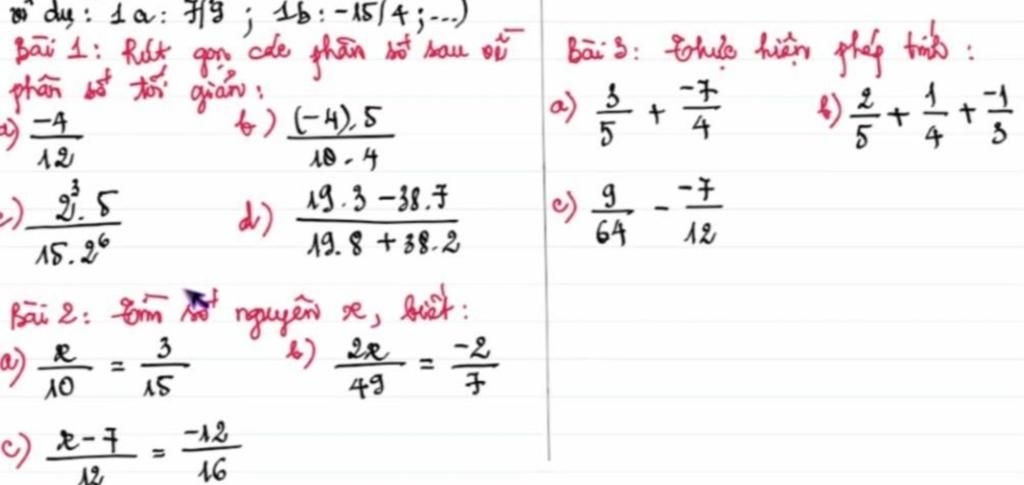 ví dụ: 1a: 7/9 ; 1b: -15/4 ; ...)
Bài 1: Rút gọn các phân số sau về
phân số tối giản:
a) -4/12 b) (-4).5/10.4
c) 2³.5/15.2⁶ d) 19.3 - 38.7/19.8 + 38.2
Bài 2: Tìm số nguyên x, biết:
a) x/10 = 3/15 b) 2x/49 = -2/7
c) x-7/12 = -12/16
Bài 3: Thực hiện phép tính:
a) 3/5 + -7/4 b) 2/5 + 1/4 + -1/3
c) 9/64 - -7/12